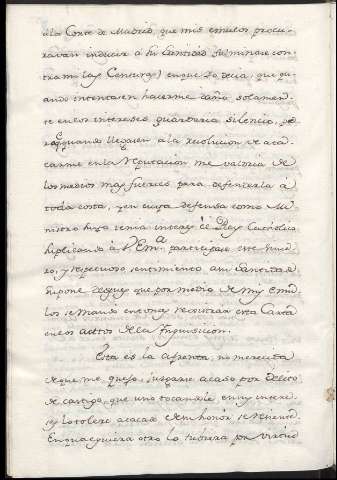 à la Corte de Madrid, que mis emulos procu-
ravan inducir à Su Santidad fulminase con-
tra mi las Censuras) en que Yo decia, que qu-
ando intentasen hacerme daño solamen-
te en los intereses guardaria silencio, pe-
ro quando llegasen à la resolucion de ata-
carme en la Reputacion me valdria de
los medios mas fuertes para defenderla à
toda costa, y en cuya defensa como Mi-
nistro suyo tenia interes el Rey Catholico
suplicando à V. Em.ª participase este
y respetuoso sentimiento à su Santidad
supone despues que por medio de mis Emu-
los se mandò registrar esta Carta
en los autos de la Inquisicion.
Esta es la afrenta, no merecida
de que me quejo, juzgarse acaso por delito
de castigo, que uno tocandole en su interes
y lo tolere, atacado en honor se resiente
En qualquiera otro lo tubiera por virtud